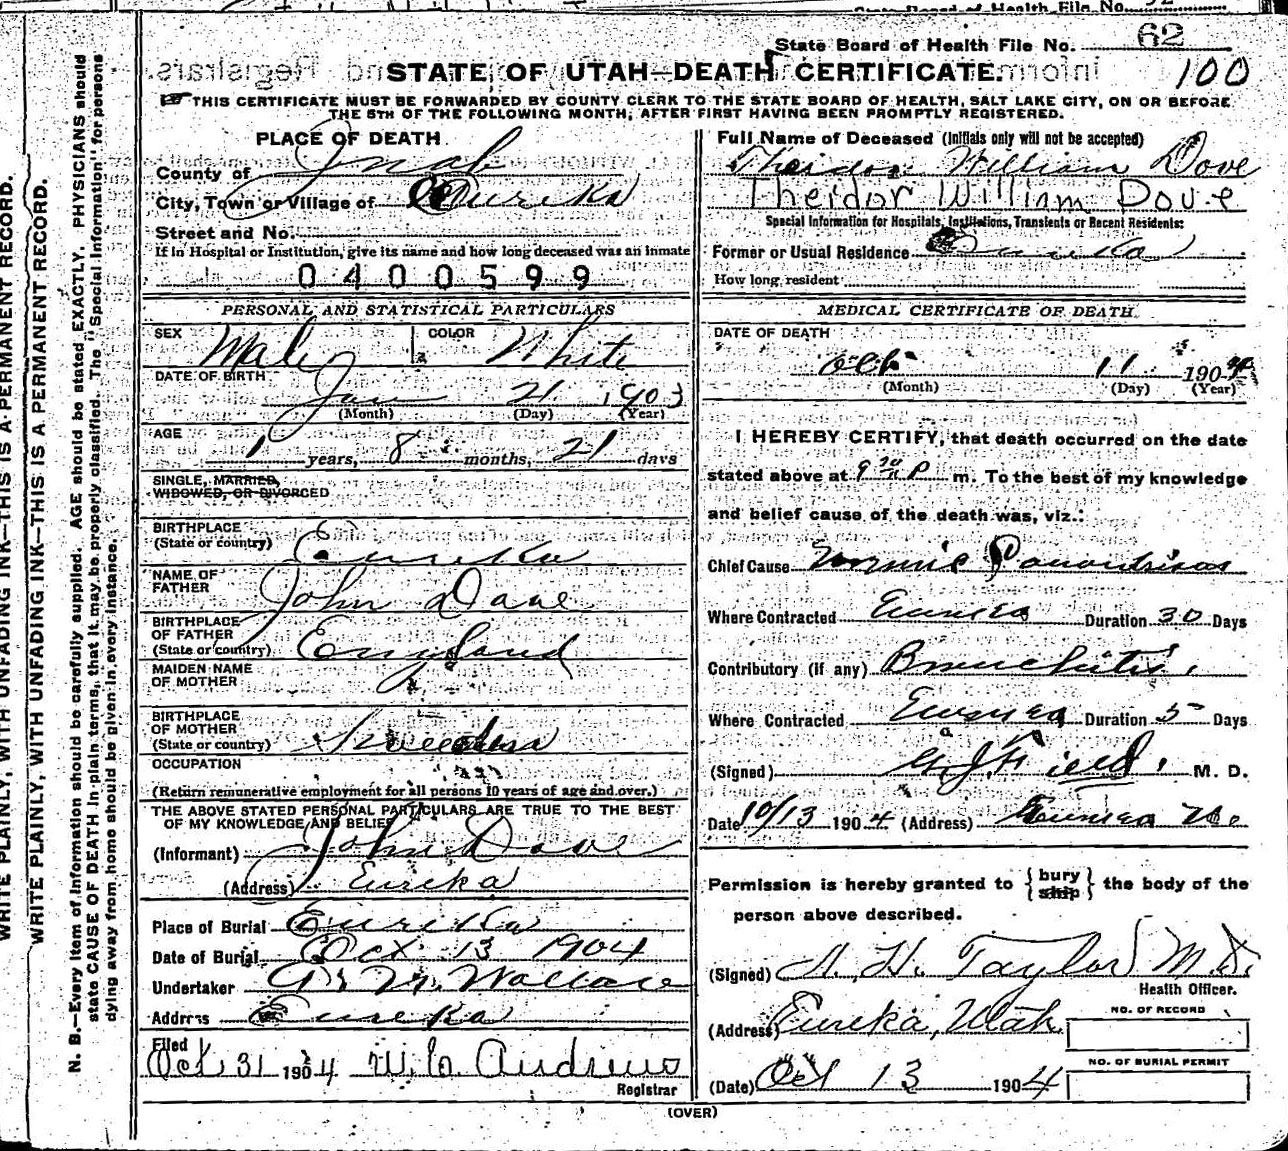 State Board of Health File No.
State Board of Health File No. 62
100
STATE OF UTAH—DEATH CERTIFICATE.
THIS CERTIFICATE MUST BE FORWARDED BY COUNTY CLERK TO THE STATE BOARD OF HEALTH, SALT LAKE CITY, ON OR BEFORE
THE 5TH OF THE FOLLOWING MONTH, AFTER FIRST HAVING BEEN PROMPTLY REGISTERED.
PLACE OF DEATH
County of Juab
City, Town or Village of Eureka
Street and No.
If in Hospital or Institution, give its name and how long deceased was an inmate
0400599
PERSONAL AND STATISTICAL PARTICULARS
SEX Male COLOR White
DATE OF BIRTH
Jan 21 1903
(Month) (Day) (Year)
AGE
1 years, 8 months, 21 days
SINGLE, MARRIED,
WIDOWED, OR DIVORCED
BIRTHPLACE
(State or country) Eureka
NAME OF
FATHER John Dove
BIRTHPLACE
OF FATHER
(State or country) England
MAIDEN NAME
OF MOTHER
BIRTHPLACE
OF MOTHER
(State or country) Sweeden
OCCUPATION
(Return remunerative employment for all persons 10 years of age and over.)
THE ABOVE STATED PERSONAL PARTICULARS ARE TRUE TO THE BEST
OF MY KNOWLEDGE AND BELIEF
(Informant) John Dove
(Address) Eureka
Place of Burial Eureka
Date of Burial Oct 13 1904
Undertaker Wallace
Address Eureka
Filed
Oct 31 1904 W. C. Andrews
Registrar
Full Name of Deceased (Initials only will not be accepted)
Theidor William Dove
Theidor William Dove
Special Information for Hospitals, Institutions, Transients or Recent Residents:
Former or Usual Residence Eureka
How long resident
MEDICAL CERTIFICATE OF DEATH
DATE OF DEATH
Oct 11 1904
(Month) (Day) (Year)
I HEREBY CERTIFY, that death occurred on the date
stated above at 9 30 P m. To the best of my knowledge
and belief cause of the death was, viz.:
Chief Cause
Where Contracted Eureka Duration 30 Days
Contributory (if any) Bronchitis
Where Contracted Eureka Duration 5 Days
(Signed) G. J. Field, M. D.
Date 10/13 1904 (Address) Eureka
Permission is hereby granted to { bury ship } the body of the
person above described.
(Signed) A. H. Taylor M.D.
Health Officer.
(Address) Eureka, Utah
NO. OF RECORD
NO. OF BURIAL PERMIT
(Date) Oct 13 1904
(OVER)
WRITE PLAINLY, WITH UNFADING INK—THIS IS A PERMANENT RECORD.
WRITE PLAINLY, WITH UNFADING INK—THIS IS A PERMANENT RECORD.
N. B.—Every item of information should be carefully supplied. AGE should be stated EXACTLY. PHYSICIANS should
state CAUSE OF DEATH in plain terms, that it may be properly classified. The "Special Information" for persons
dying away from home should be given in every instance.